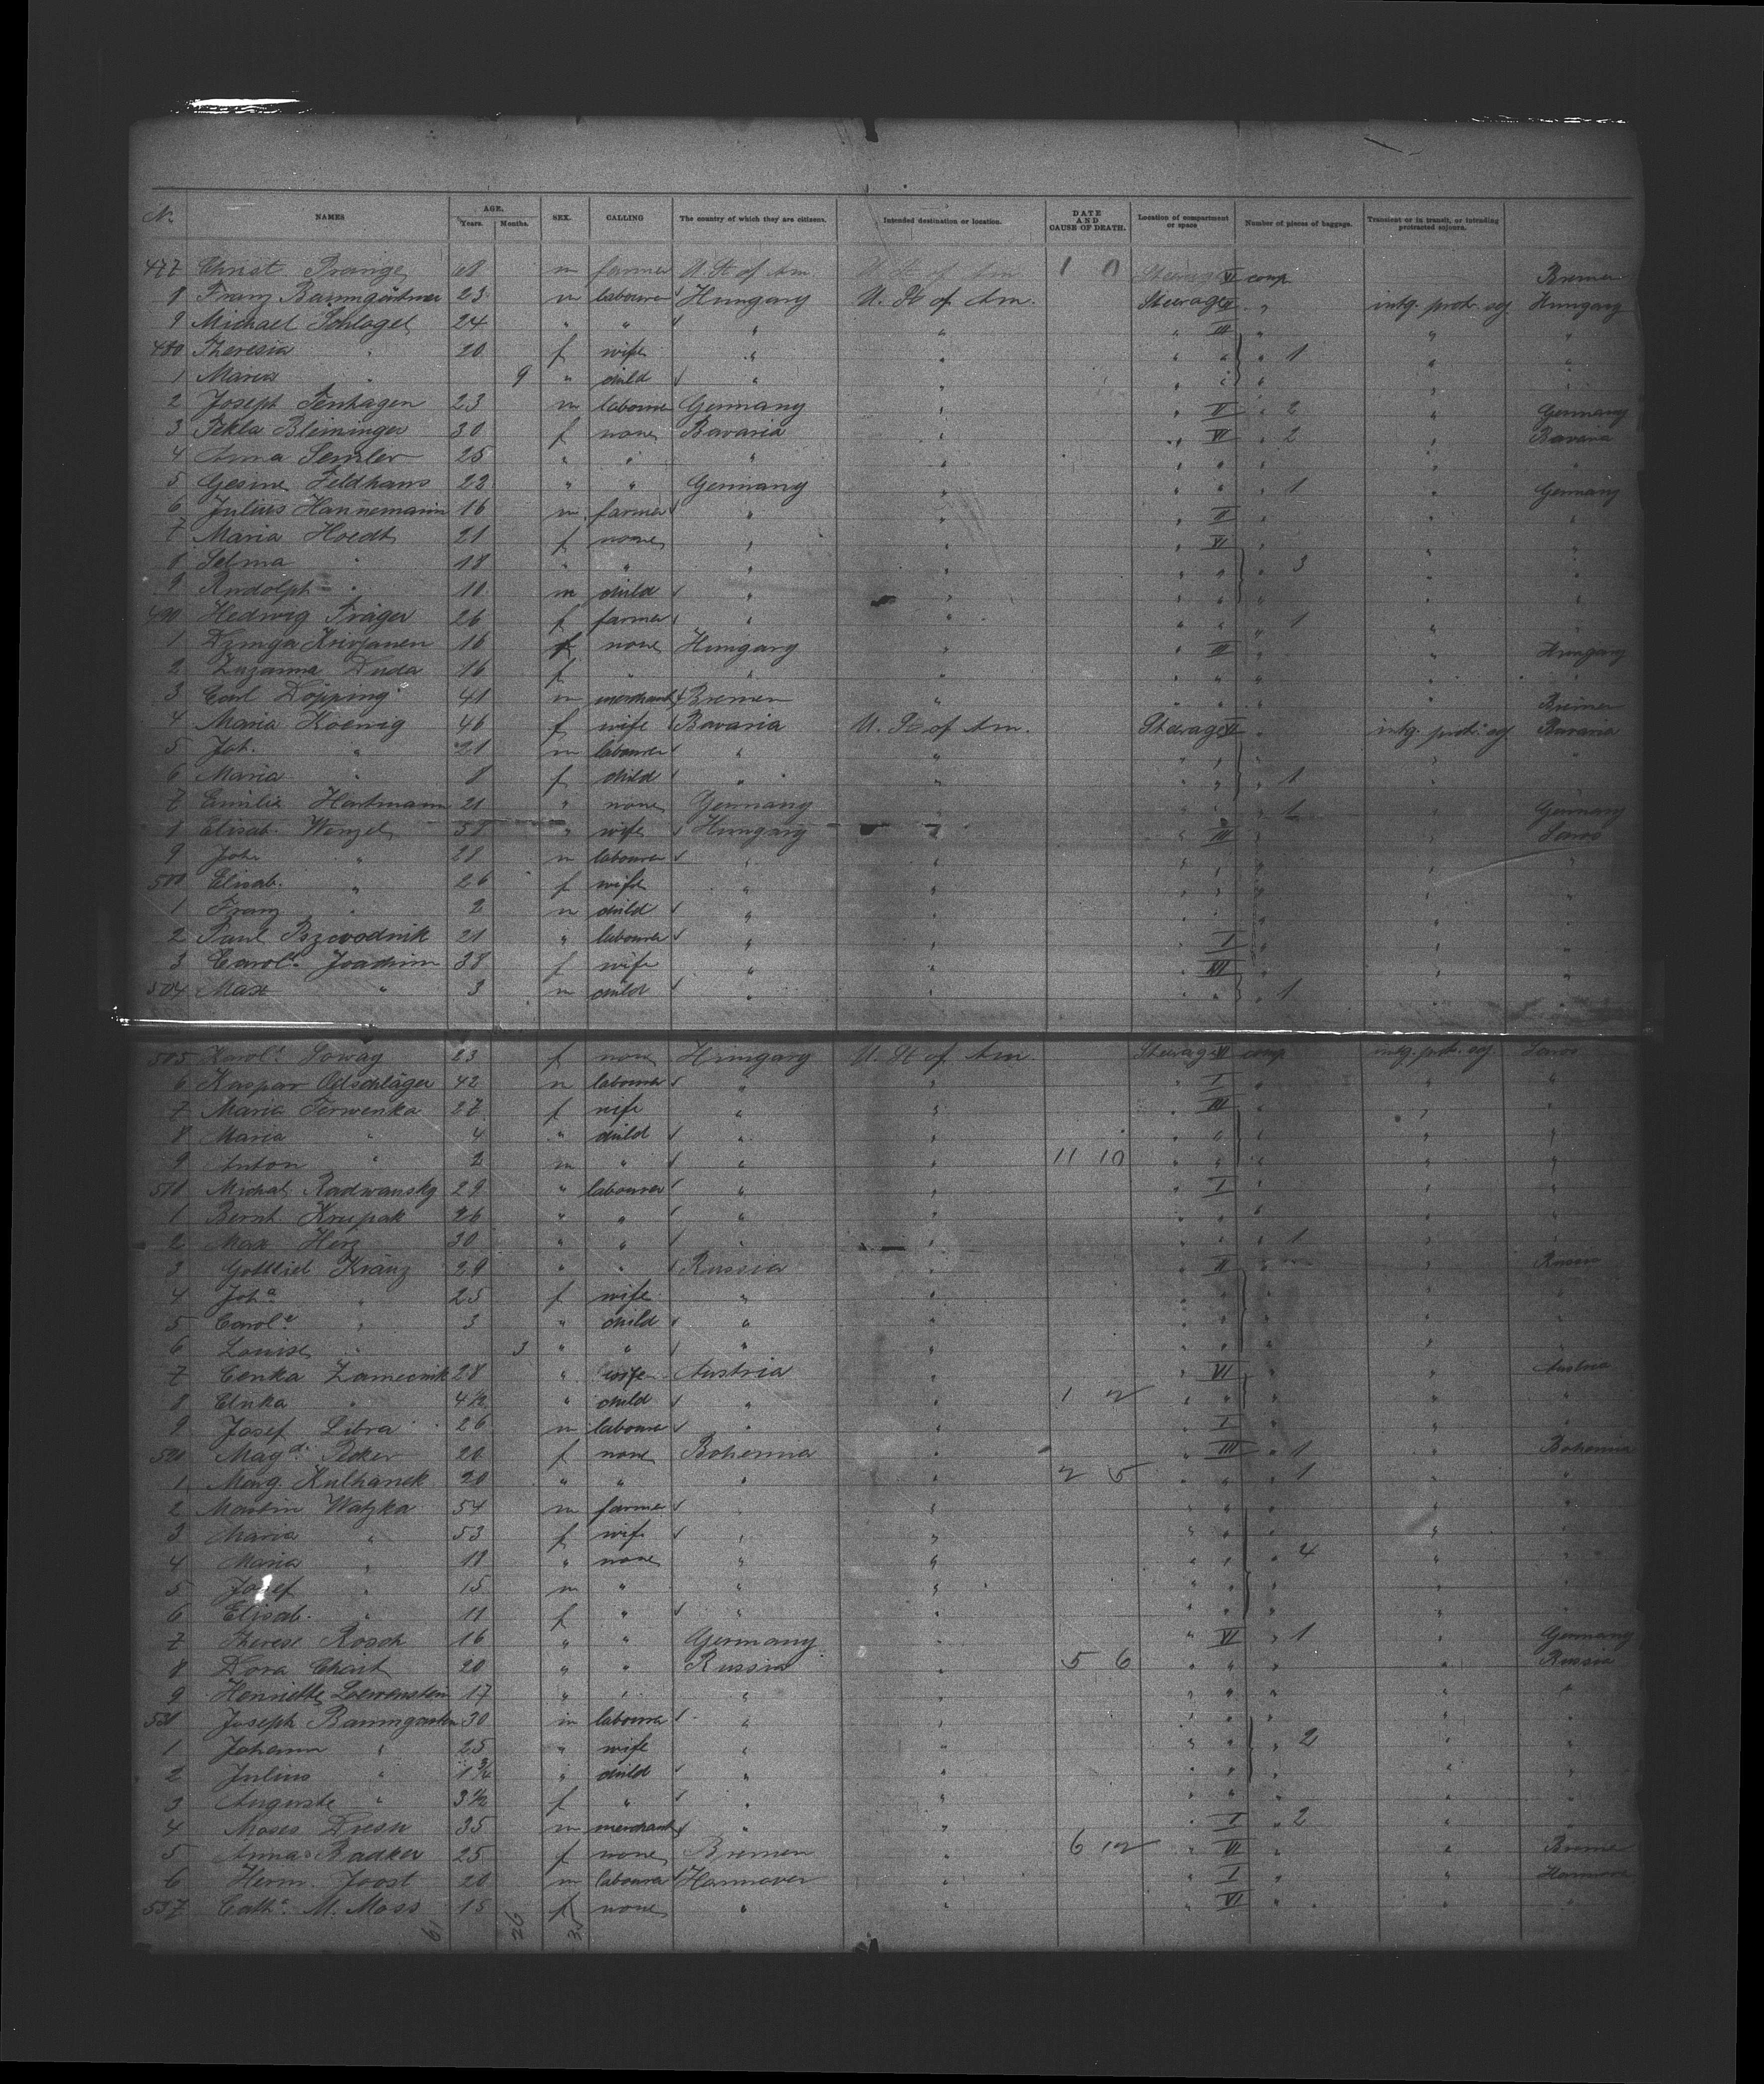 No. NAMES AGE. Years. Months. SEX. CALLING The country of which they are citizens. Intended destination or location. DATE AND CAUSE OF DEATH. Location of compartment or space Number of pieces of baggage. Transient or in transit, or intending protracted sojourn.
477 Christ. Prange m farmer U. St. of Am. U. St. of Am. Steerage VI comp Bremen
8 Franz Baumgärtner 23 m labourer Hungary U. St. of Am. Steerage " intg. prot. soj. Hungary
9 Michael Schlagel 24 " " " " " III " " "
480 Theresia " 20 f wife " " " " " 1 " "
1 Maria " 9 " child " " " " " " "
2 Joseph Tenhagen 23 m labourer Germany " " II " 2 " Germany
3 Tekla Bleininger 30 f none Bavaria " " VI " 2 " Bavaria
4 Anna Semler 25 " " " " " " " "
5 Gesine Feldhaus 22 " " Germany " " " " 1 " Germany
6 Julius Hannemann 16 m farmer " " " II " " "
7 Maria Hoedt 21 f none " " " VI " " "
8 Selma " 18 " " " " " " " 3 " "
9 Rudolph " 10 m child " " " " " " "
490 Hedwig Träger 26 f farmer " " " " " 1 " "
1 Krivjanen 16 f none Hungary " " III " " Hungary
2 Zuzanna Duda 16 f " " " " " " " "
3 Carl Döpping 41 m merchant Bremen " " " " " Bremen
4 Maria Koenig 46 f wife Bavaria U. St. of Am. Steerage VI " intg. prot. soj. Bavaria
5 Joh. " 21 m labourer " " " " " " "
6 Maria " 8 f child " " " " " 1 " "
7 Emilie Hartmann 21 " none Germany " " " " 1 " Germany
8 Elisab. Wenzel 51 " wife Hungary " " III " Saros
9 Joh. " 28 m labourer " " " " " "
500 Elisab. " 26 f wife " " " " " "
1 Franz " 2 m child " " " " " "
2 Paul 21 " labourer " " " I " " "
3 Carol. Joachim 38 f wife " " " VI " " "
504 Max " 3 m child " " " " " 1 " "
505 Karol. Soway 23 f none Hungary U. St. of Am. Steerage VI comp intg. prot. soj. Saros
6 Kaspar Odschläger 42 m labourer " " " I " " "
7 Maria Terwenka 27 f wife " " " III " " "
8 Maria " 4 " child " " " " " " "
9 Anton " 2 m " " " 11 10 " " " " "
510 Michal Radwansky 29 " labourer " " " I " " "
1 Bernt. Krupak 26 " " " " " " " " "
2 Max Herz 30 " " " " " " " 1 " "
3 Gottlieb Kranz 29 " " Russia " " II " " Russia
4 Joh.a " 25 f wife " " " " " "
5 Carol.e " 3 " child " " " " " "
6 Louise " 3 " " " " " " " " "
7 Cenka Zamecnik 28 " wife Austria " VI " " Austria
8 Elnka " 4½ " child " " 1 2 " " " " "
9 Josef Libra 26 m labourer " " " I " " "
520 Magd. Pecker 20 f none Bohemia " " III " 1 " Bohemia
1 Marg. Kulhanek 20 " " " " 2 5 " " " 1 " "
2 Martin Watzka 54 m farmer " " " " " " "
3 Maria " 53 f wife " " " " " " "
4 Maria " 18 " none " " " " " 4 " "
5 Josef " 15 m " " " " " " " "
6 Elisab. " 11 f " " " " " " " "
7 Therese Rosch 16 " " Germany " " VI " 1 " Germany
8 Dora Chait 20 " " Russia " 5 6 " " " " Russia
9 Henriette Loewenstein 17 " " " " " " " " "
530 Joseph Baumgarten 30 m labourer " " " " " " "
1 Johann " 25 " wife " " " " " 2 " "
2 Julius " 1¾ " child " " " " " " "
3 Auguste " 3½ f " " " " " " "
4 Moses Dresk 35 m merchant " " " I " 2 " "
5 Anna Radker 25 f none Bremen " 6 12 " III " " Bremen
6 Herm. Joost 20 m labourer Hannover " " I " " Hannover
537 Cath.a M. Moss 15 f none " " " VI " " "
61 26 35